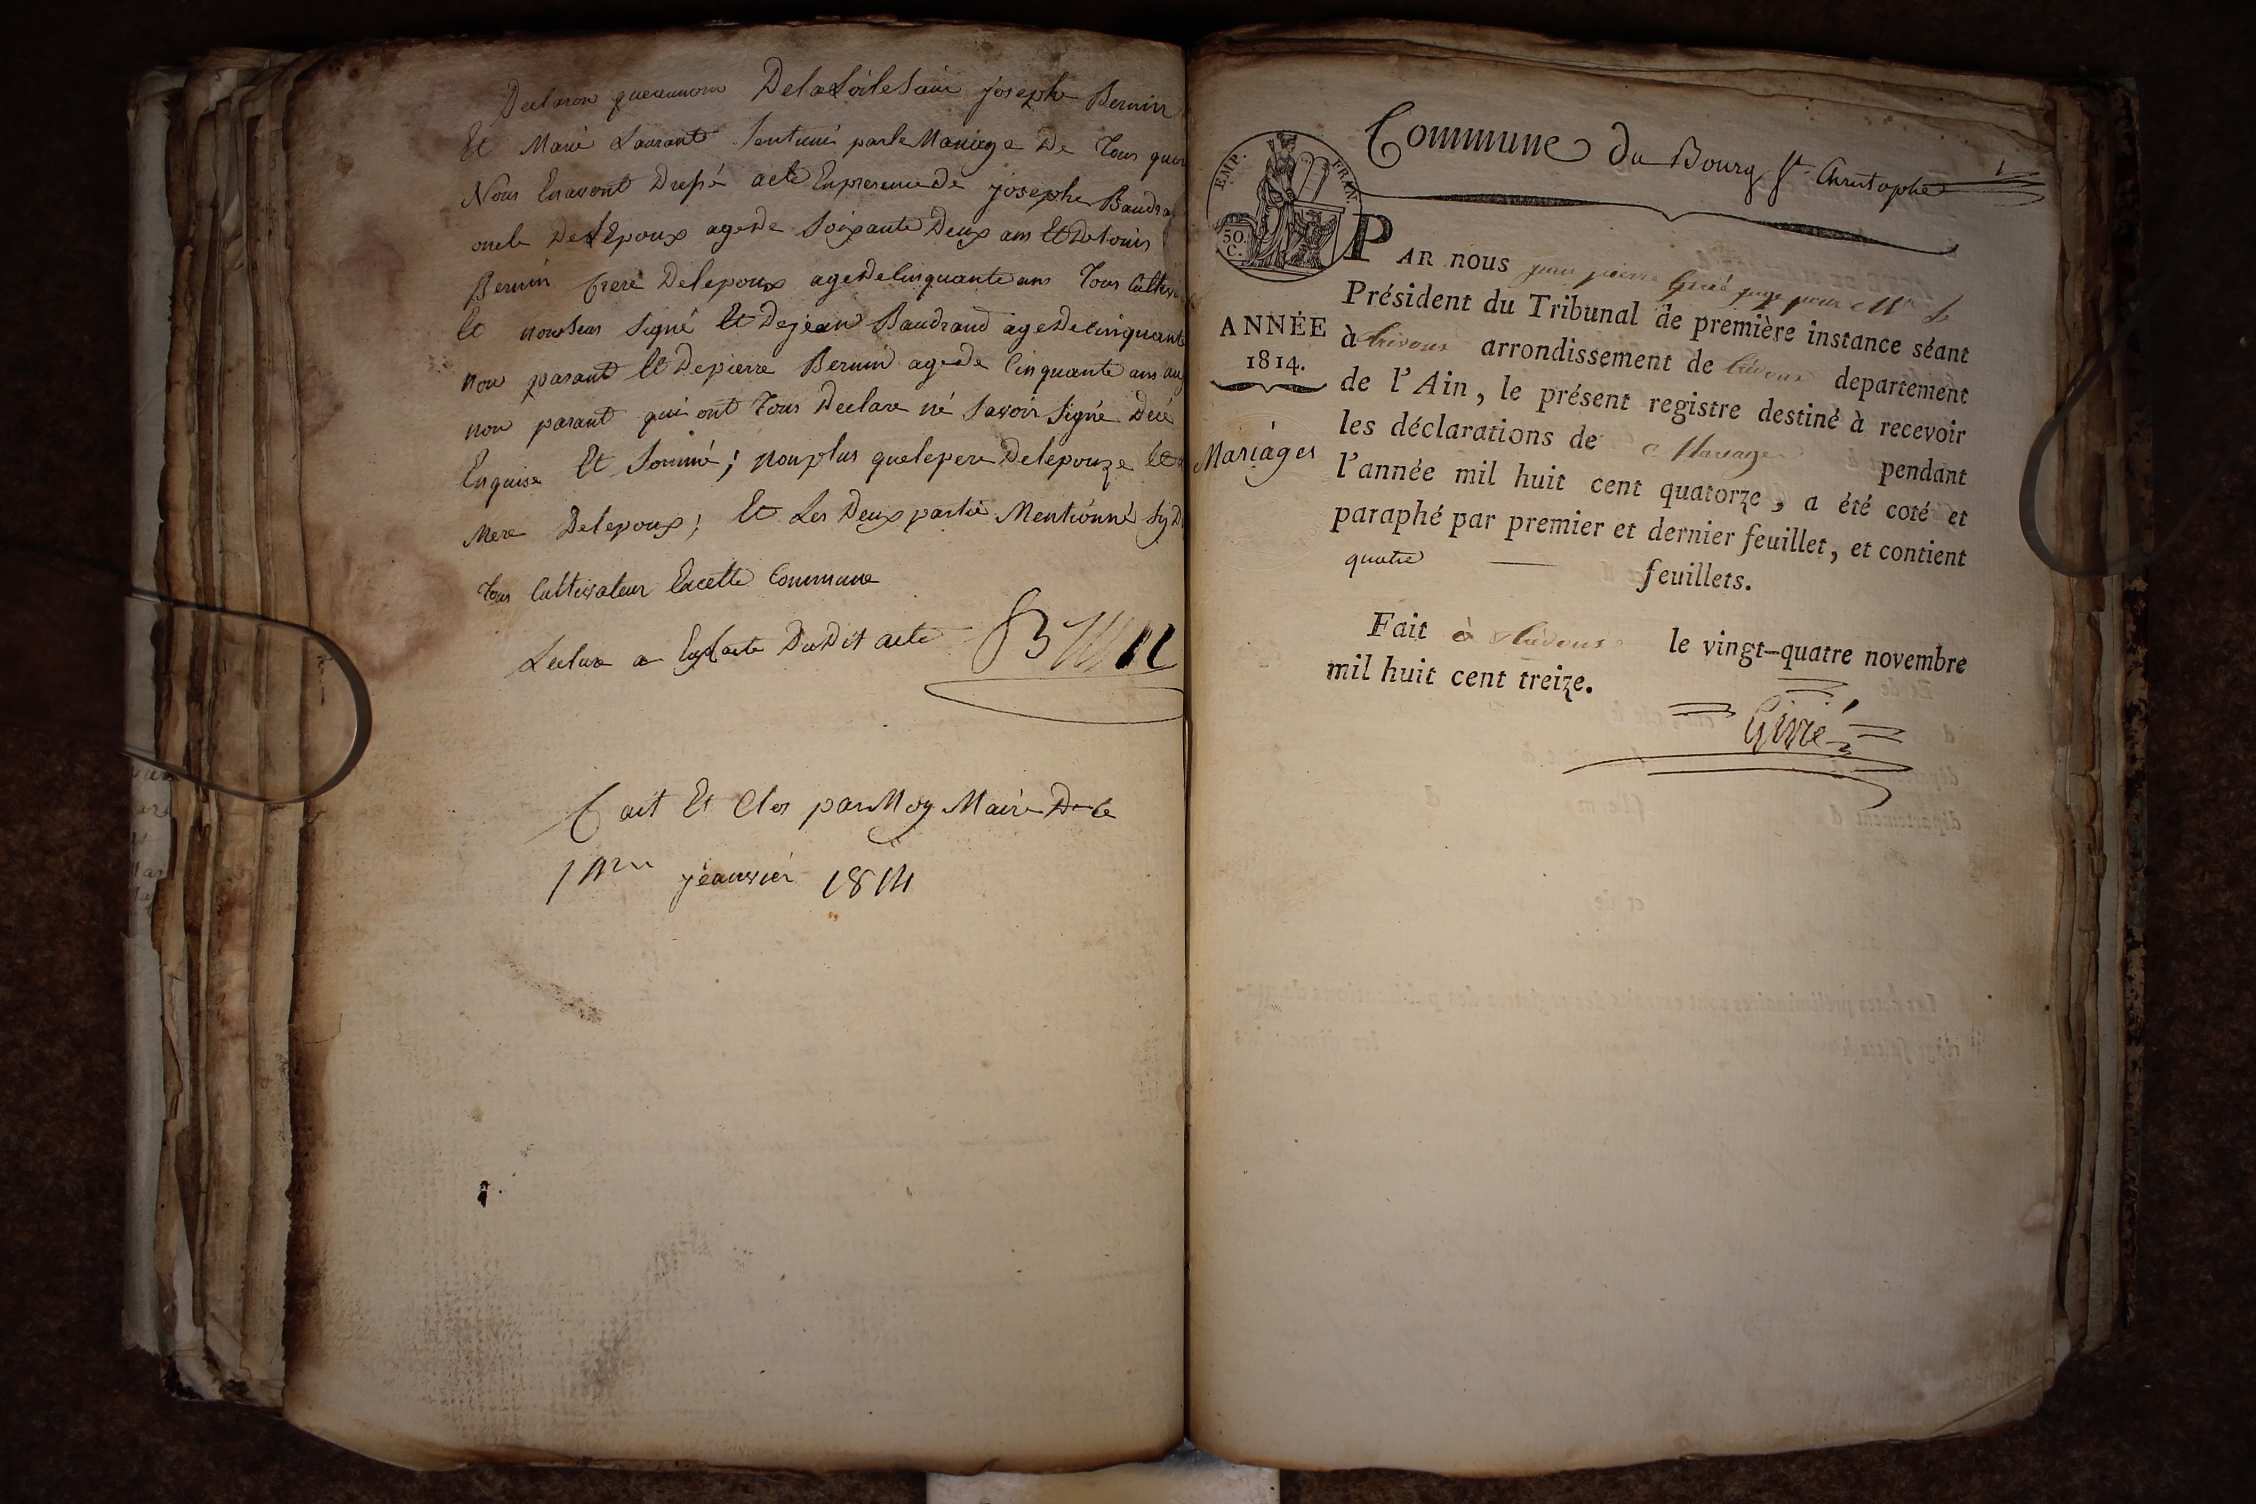 Declaron queaunom De la Loi le Sair joseph Bernin
Et Marie Laurant Sont unis par le Mariage De Tous quoi
Nous En avont Dressé acte En presence de joseph Baudra
oncle De L'Epoux age De Soixante Deux ans Et De Louis
Bernin frere De lepoux age De Cinquante ans Tous Cultiv
Et nonSeu Signé Et De jean Baudrand age De cinquante
non parant Et De pierre Bernin age de Cinquante ans au
non parant qui ont Tous Declare né Savoir Signé De cé
Enquise Et Sommé ; non plus que le pere De lepouze Et
Mere De lepoux ; Et Les Deux partie Mentionné
Tous Cultivateur En cette Commune
Lecture a Du Dit acte
fait Et Clos par Moy Maire De
jeanvier 1814
EMP. FRAN.
50. C.
Commune du Bourg St Christophe
1
PAR nous jean pierre Givré juge pour Mr le
Président du Tribunal de première instance séant
à trévoux arrondissement de trévoux departement
de l'Ain, le présent registre destiné à recevoir
les déclarations de Mariages pendant
l'année mil huit cent quatorze, a été coté et
paraphé par premier et dernier feuillet, et contient
quatre feuillets.
ANNÉE
1814.
Mariáges
Fait à trévoux le vingt-quatre novembre
mil huit cent treize.
Givré